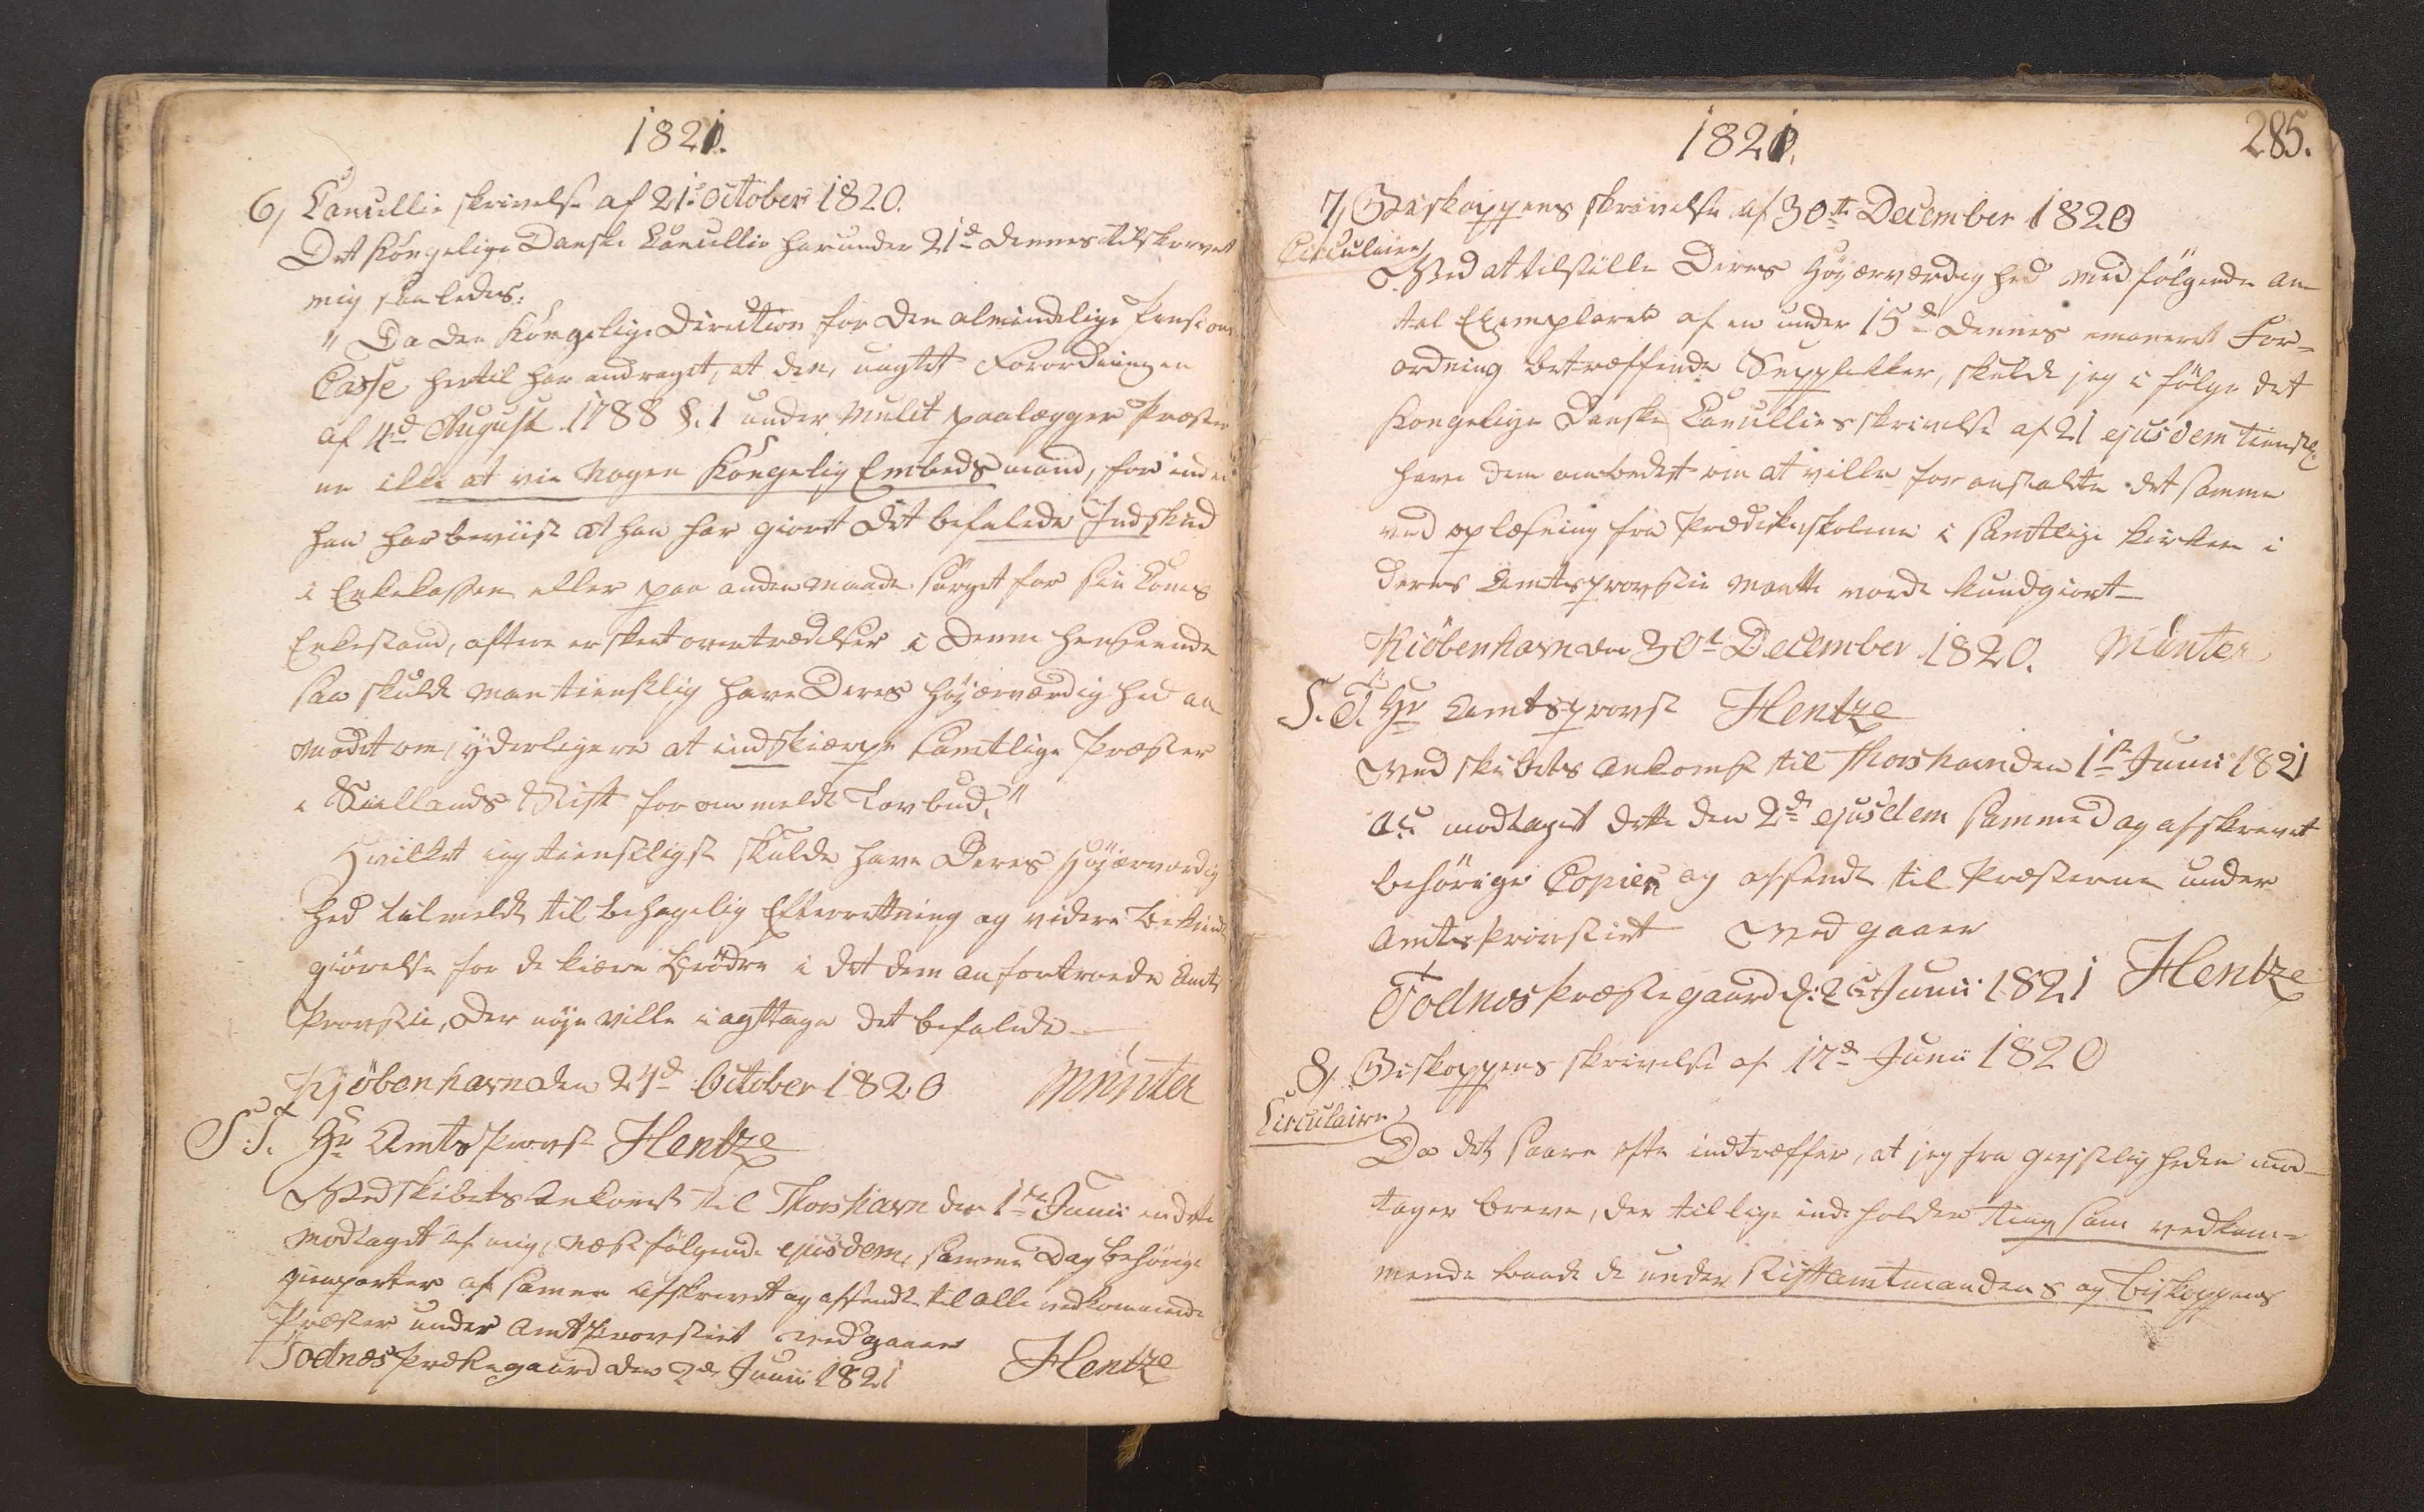 1821.
6, Cancellie skrivelse af 21de October 1820.
Det Kongelige Danske Cancellie har under 21d dennes tilskrevet
mig saaledes:
"Da den Kongelige Direction for den almindelige Pensions
Casse hertil har andraget, at den, uagtet Forordningen
af 4d August 1788 §. 1 under Mulct paalægger Præster
ne ikke at vie Nogen Kongelig Embedsmand, før inden
han har beviist at han har giort det befalede Indskud
i Enkekassen eller paa anden maade sørget for sin Kones
Enkestand, oftere er skeet overtrædelser i denne henseende
saa skulde man tienstlig have Deres Høyærværdighed an
modet om, yderligere at indskiærpe samtlige Præster
i Siellands Stift forommeldte Lovbud."
Hvilket jeg tienstligst skulde have Deres Højærværdig
hed tilmeldt til behagelig Efterretning og videre Bekiendt
giørelse for de kiære Brødre i det dem anfortroede Amts
Provstie, der nøje ville iagttage det befalede
Kjøbenhavn den 24d October 1820 Münter
S. T. Hr Amts Provst Hentze
Med skibets Ankomst til Thorshavn den 1ste Junii er dette
modtaget af mig, næstfølgende ejusdem, samme Dag behørige
gienparter af samme Afskrevet og afsendt til alle vedkommende
Præster under Amtprovstiet vedgaaer
Todnes Præstegaard den 2de Junii 1821 Hentze
1821.
285.
7, Biskoppens skrivelse af 30te December 1820
Circulaire
Ved at tilstille Deres Høyærværdighed medfølgende an-
tal Exemplarer af en under 15d dennes emaneret For-
ordning betræffende Suppliker, skulde jeg i følge det
Kongelige Danske Cancellies skrivelse af 21 ejusdem tienstl:
have dem ombedet om at ville foranstalte det samme
ved oplæsning fra Prædikestolene i samtlige Kirker i
deres Amtsprovstie maatte vorde kundgiort
Kiöbenhavn den 30t December 1820. Münter
S. T. Hr Amtsprovst Hentze
Med skibets Ankomst til Thorshavn den 1ste Junii 1821
er modtaget dette den 2de ejusdem samme Dag afskrevet
behørige Copier og afsendt til Præsterne under
Amtsprovstiet Vedgaaer
Todnes Præstegaard d: 2de Junii 1821 Hentze
8, Biskoppens skrivelse af 17d Junii 1820
Circulaire
Da det saare ofte indtræffer, at jeg fra Geistligheden mod-
tager breve, der tillige indeholder ting som vedkom-
mende baade de under Stiftamtmandens og Biskoppens